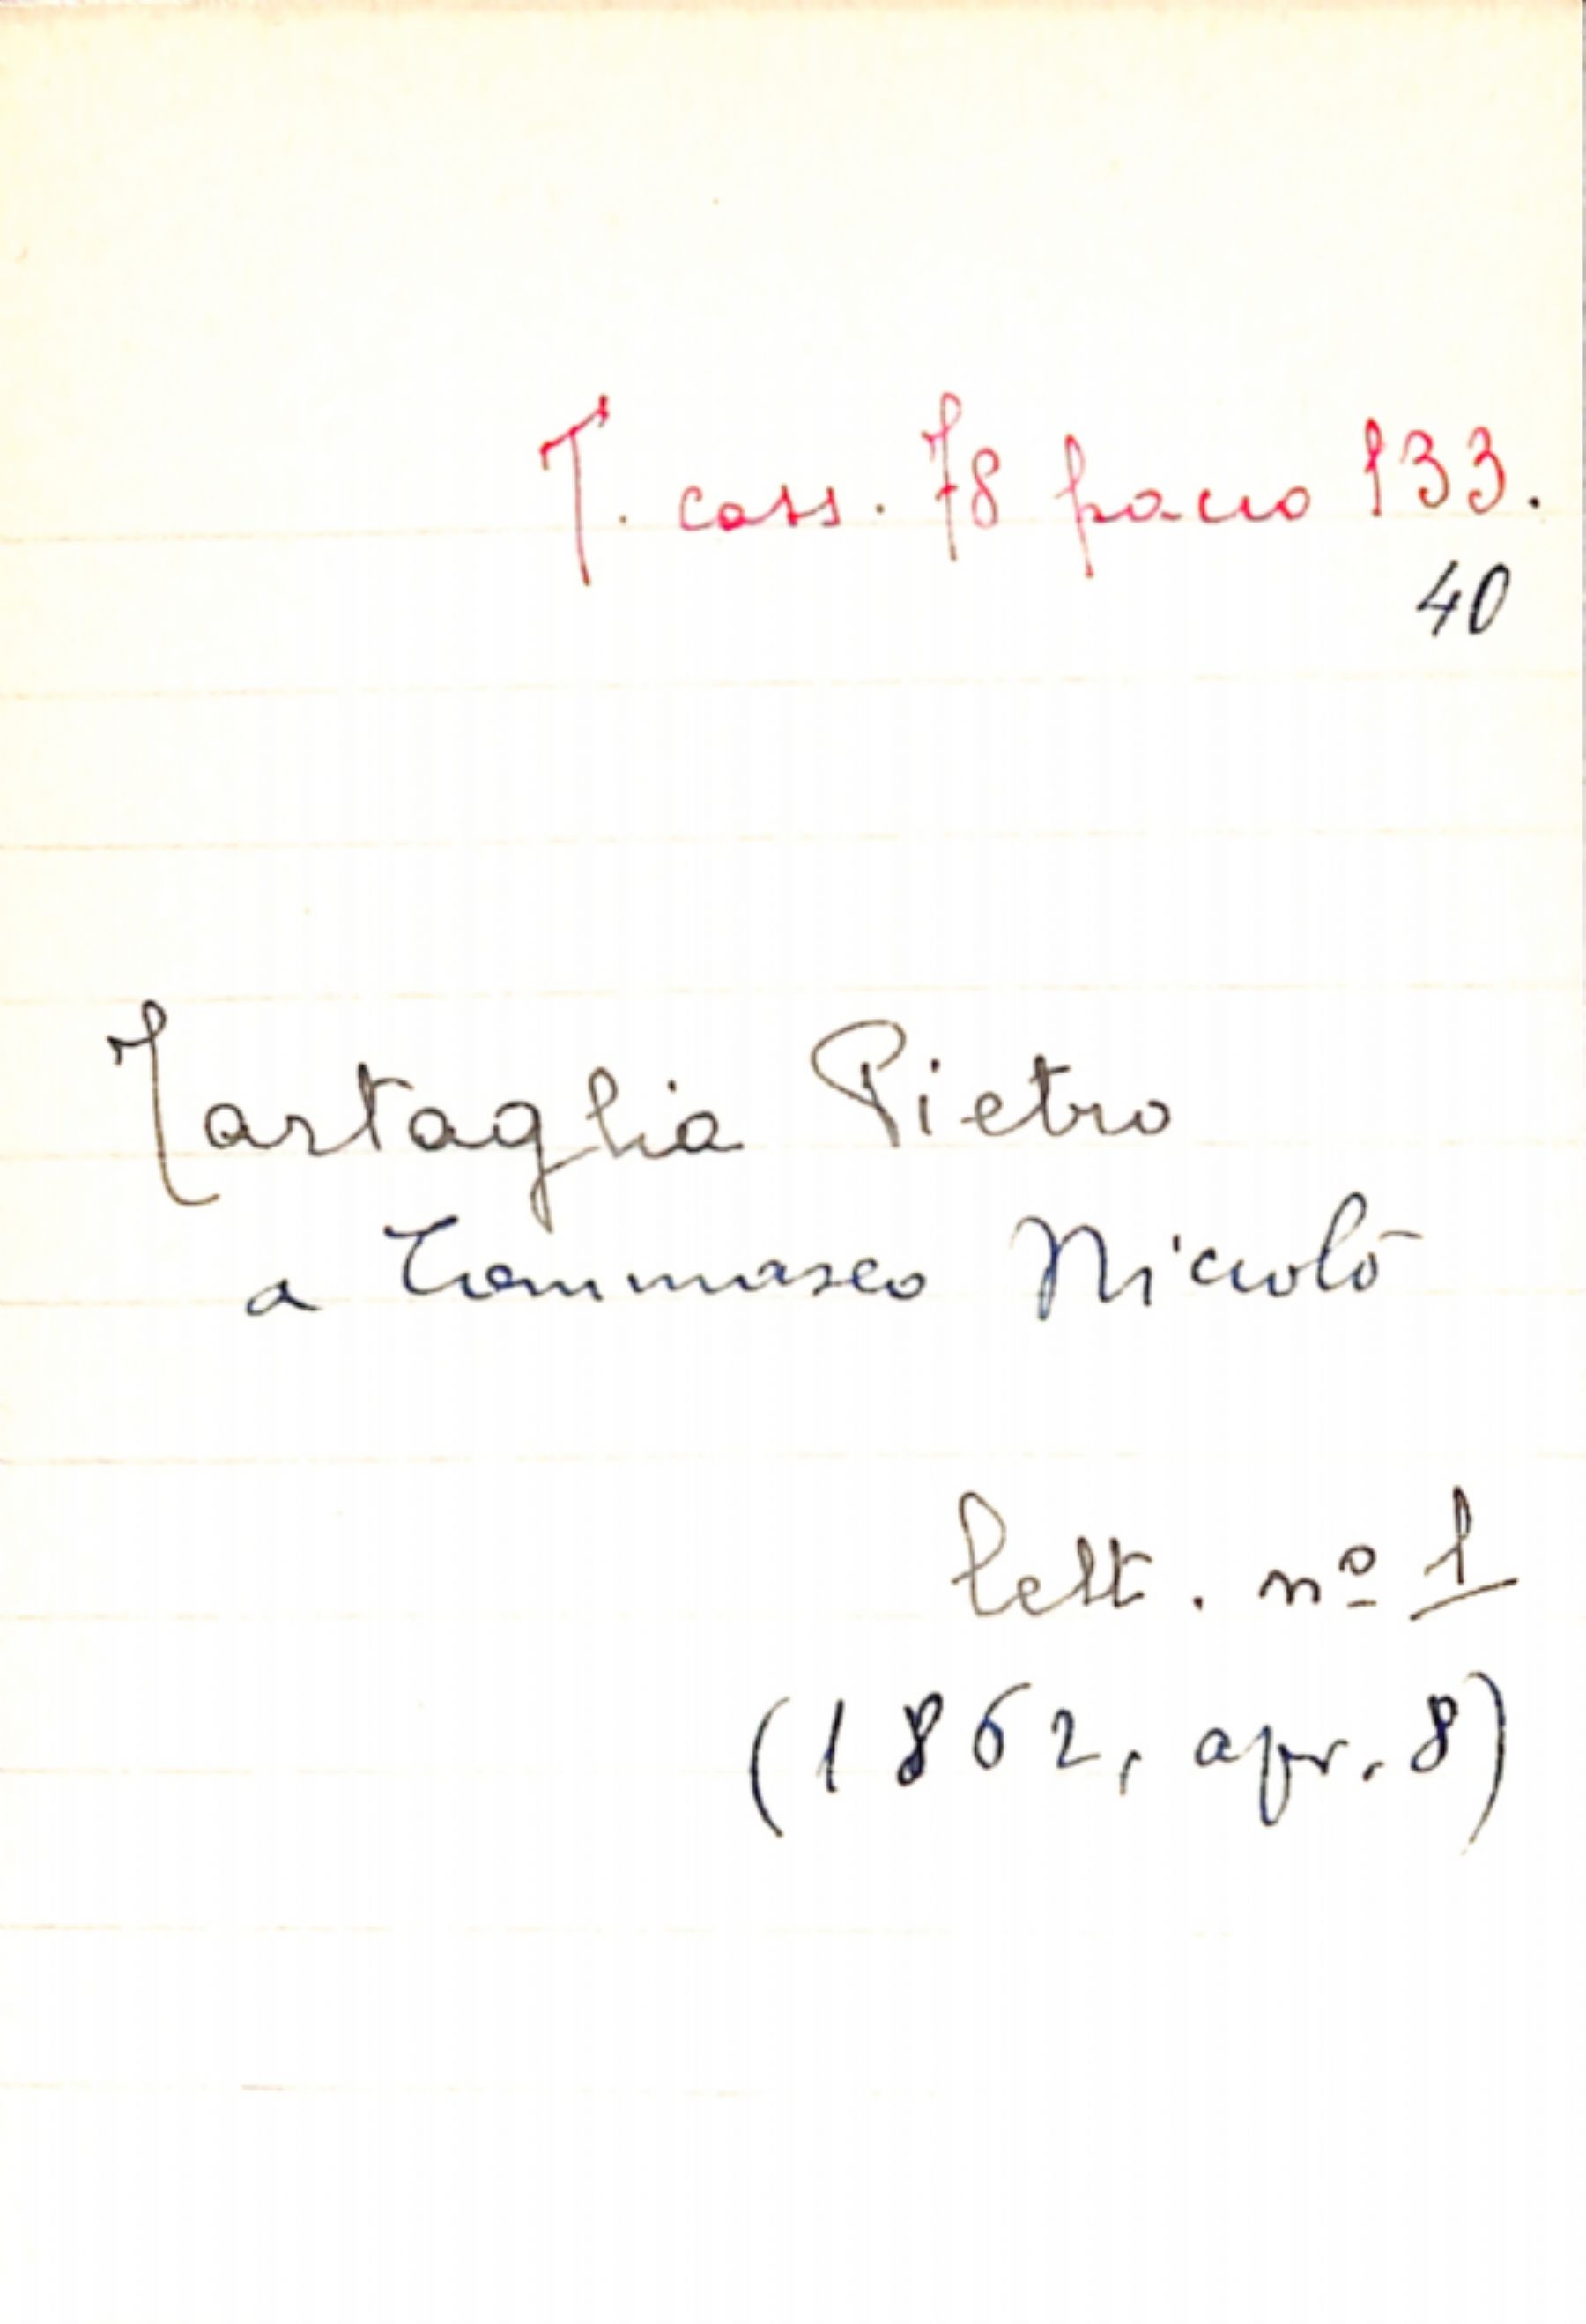 T. cass. 78 pacco 133.
40
Tartaglia Pietro
a Tommaseo Niccolò
lett. nº 1
(1862, apr. 8)